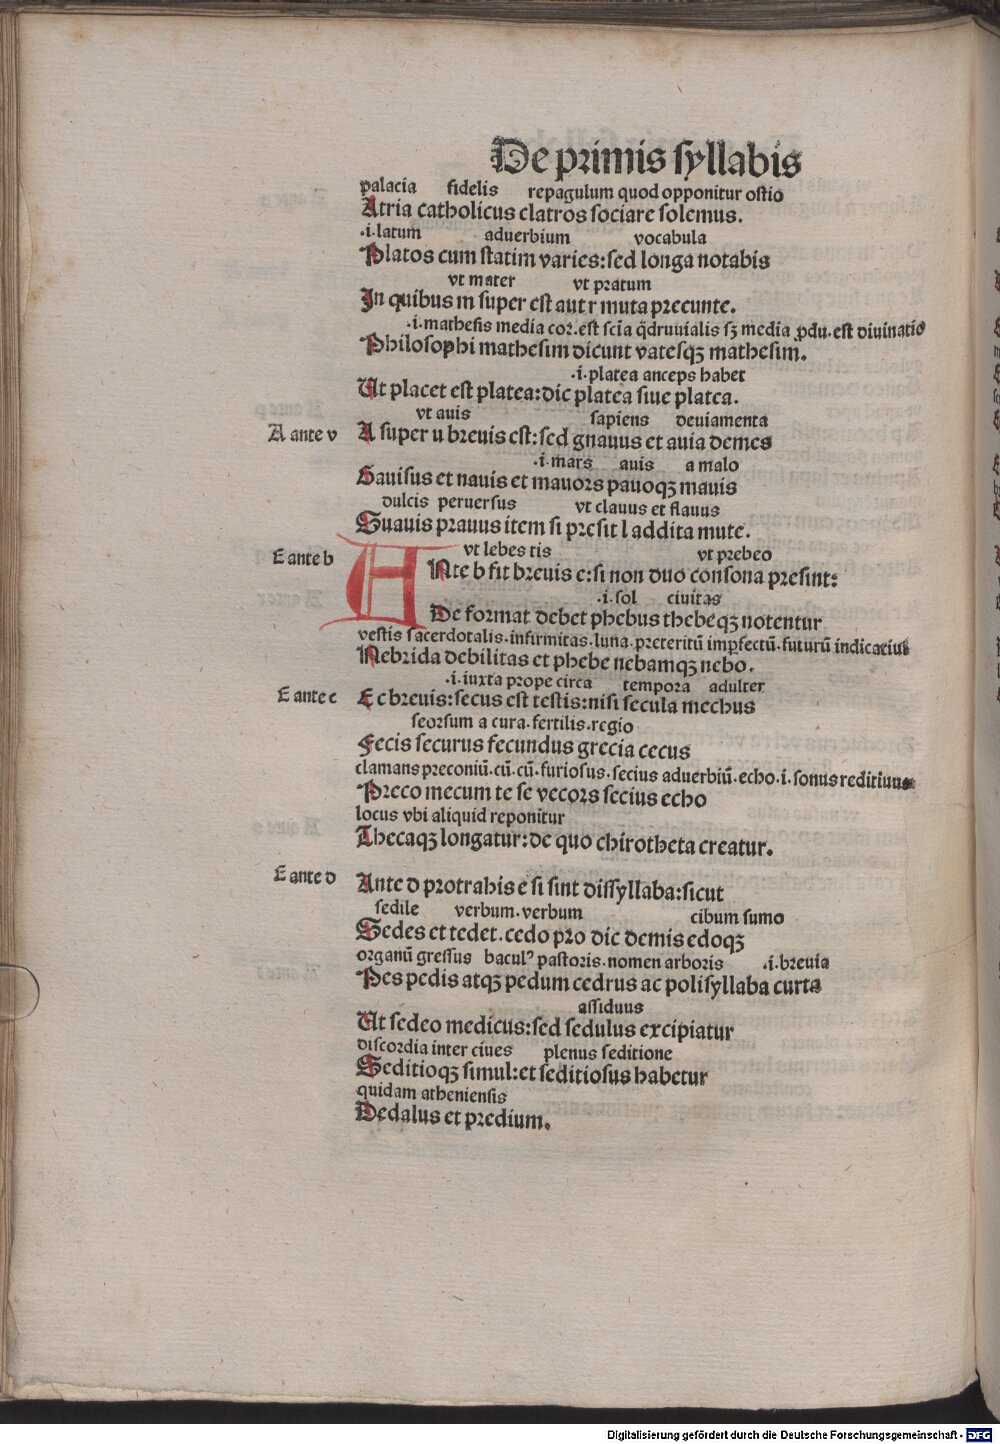 De primis syllabis
palacia fidelis repagulum quod opponitur ostio
Atria catholicus clatros sociare solemus.
.i.latum aduerbium vocabula
Platos cum statim varies:sed longa notabis
vt mater vt pratum
In quibus m super est aut r muta precunte.
.i.mathesis media cor.est scīa q̄druuialis sꝫ media ꝓdu.est diuinatio
Philosophi mathesim dicunt vatesqꝫ mathesim.
.i.platea anceps habet
Ut placet est platea:dic platea siue platea.
vt auis sapiens deuiamenta
A ante v A super u breuis est:sed gnauus et auia demes
.i.mars auis a malo
Sauisus et nauis et mauors pauoqꝫ mauis
dulcis peruersus vt clauus et flauus
Suauis prauus item si presit l addita mute.
E ante b vt lebes tis vt prebeo
ANte b fit breuis e:si non duo consona presint:
.i.sol ciuitas
De format debet phebus thebeqꝫ notentur
vestis sacerdotalis.infirmitas.luna.preteritū imꝑfectū.futurū indicatiui
Nebrida debilitas et phebe nebamqꝫ nebo.
.i.iuxta prope circa tempora adulter
E ante c E c breuis:secus est testis:nisi secula mechus
seorsum a cura.fertilis.regio
Fecis securus fecundus grecia cecus
clamans preconiū.cū.cū.furiosus.secius aduerbiū.echo.i.sonus reditiuus
Preco mecum te se vecors secius echo
locus vbi aliquid reponitur
Thecaqꝫ longatur:de quo chirotheta creatur.
E ante d Ante d protrahis e si sint dissyllaba:sicut
sedile verbum.verbum cibum sumo
Sedes et tedet.cedo pro dic demis edoqꝫ
organū gressus baculꝰ pastoris.nomen arboris .i.breuia
Pes pedis atqꝫ pedum cedrus ac polisyllaba curta
assiduus
Ut sedeo medicus:sed sedulus excipiatur
discordia inter ciues plenus seditione
Seditioqꝫ simul:et seditiosus habetur
quidam atheniensis
Dedalus et predium.
Digitalisierung gefördert durch die Deutsche Forschungsgemeinschaft - DFG